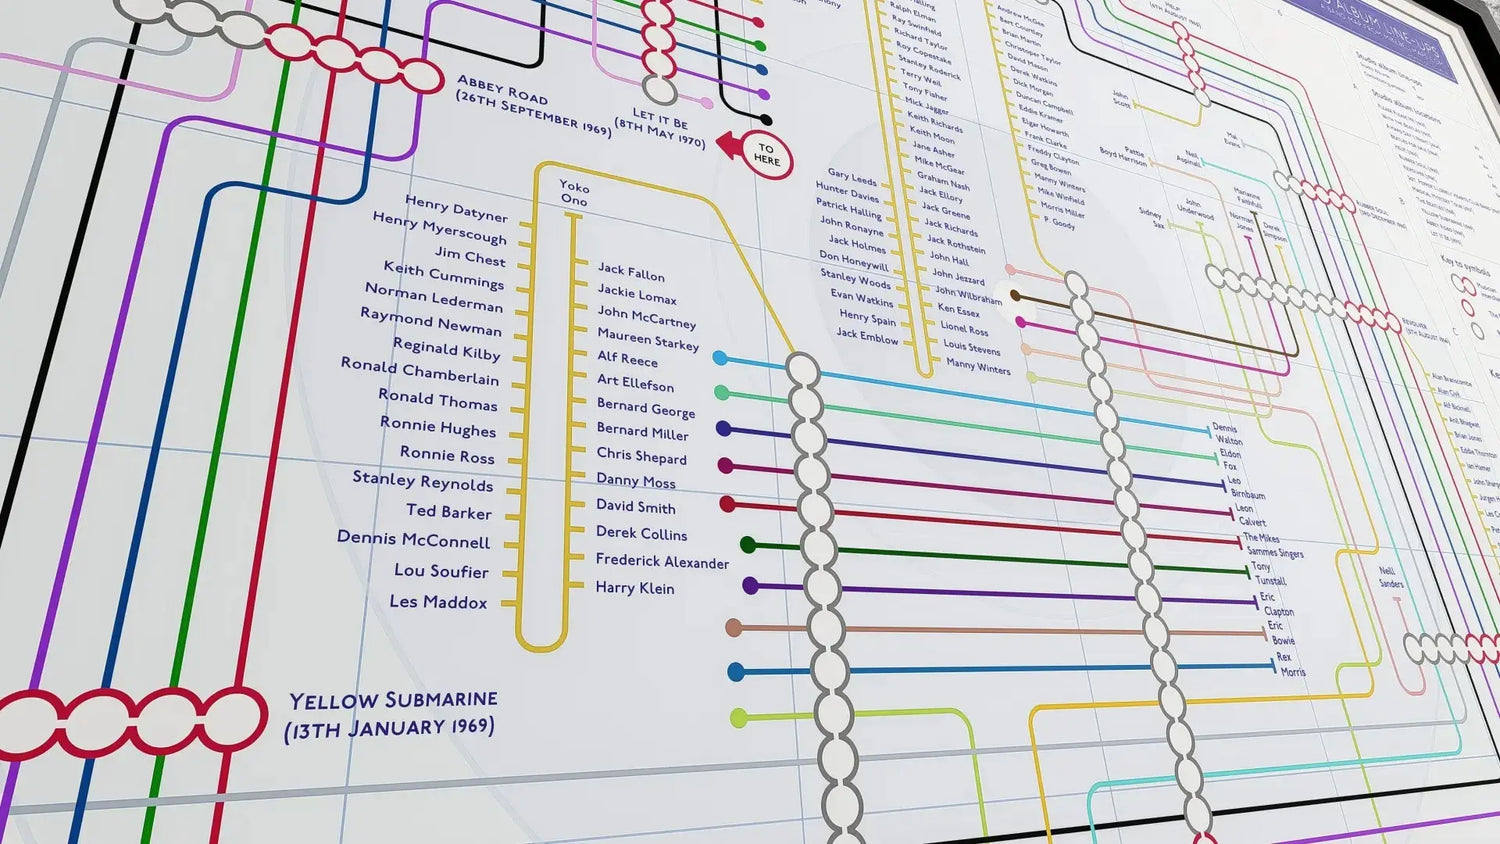 ABBEY ROAD
(26TH SEPTEMBER 1969)
LET IT BE
(8TH MAY 1970)
TO
HERE
Yoko
Ono
Henry Datyner
Henry Myerscough
Jim Chest
Keith Cummings
Norman Lederman
Raymond Newman
Reginald Kilby
Ronald Chamberlain
Ronald Thomas
Ronnie Hughes
Ronnie Ross
Stanley Reynolds
Ted Barker
Dennis McConnell
Lou Soufier
Les Maddox
Jack Fallon
Jackie Lomax
John McCartney
Maureen Starkey
Alf Reece
Art Ellefson
Bernard George
Bernard Miller
Chris Shepard
Danny Moss
David Smith
Derek Collins
Frederick Alexander
Harry Klein
YELLOW SUBMARINE
(13TH JANUARY 1969)
Gary Leeds
Hunter Davies
Patrick Halling
John Ronayne
Jack Holmes
Don Honeywill
Stanley Woods
Evan Watkins
Henry Spain
Jack Emblow
Ralph Elman
Ray Swinfield
Richard Taylor
Roy Copestake
Stanley Roderick
Terry Weil
Tony Fisher
Mick Jagger
Keith Richards
Keith Moon
Jane Asher
Mike McGear
Graham Nash
Jack Ellory
Jack Greene
Jack Richards
Jack Rothstein
John Hall
John Jezzard
John Wilbraham
Ken Essex
Lionel Ross
Louis Stevens
Manny Winters
Andrew McGee
Bert Courtley
Brian Martin
Christopher Taylor
David Mason
Derek Watkins
Dick Morgan
Duncan Campbell
Eddie Kramer
Elgar Howarth
Frank Clarke
Freddy Clayton
Greg Bowen
Manny Winters
Mike Winfield
Morris Miller
P. Goody
Dennis
Walton
Eldon
Fox
Leo
Birnbaum
Leon
Calvert
The Mikes
Sammes Singers
Tony
Tunstall
Eric
Clapton
Eric
Bowie
Rex
Morris
HELP
John
Scott
Pattie
Boyd Harrison
Neil
Aspinall
Mal
Evans
Marianne
Faithfull
Sidney
Sax
John
Underwood
Norman
Jones
Derek
Simpson
RUBBER SOUL
REVOLVER
Neill
Sanders
ALBUM LINE-UPS
Studio album line-ups
Studio album locations
Key to symbols